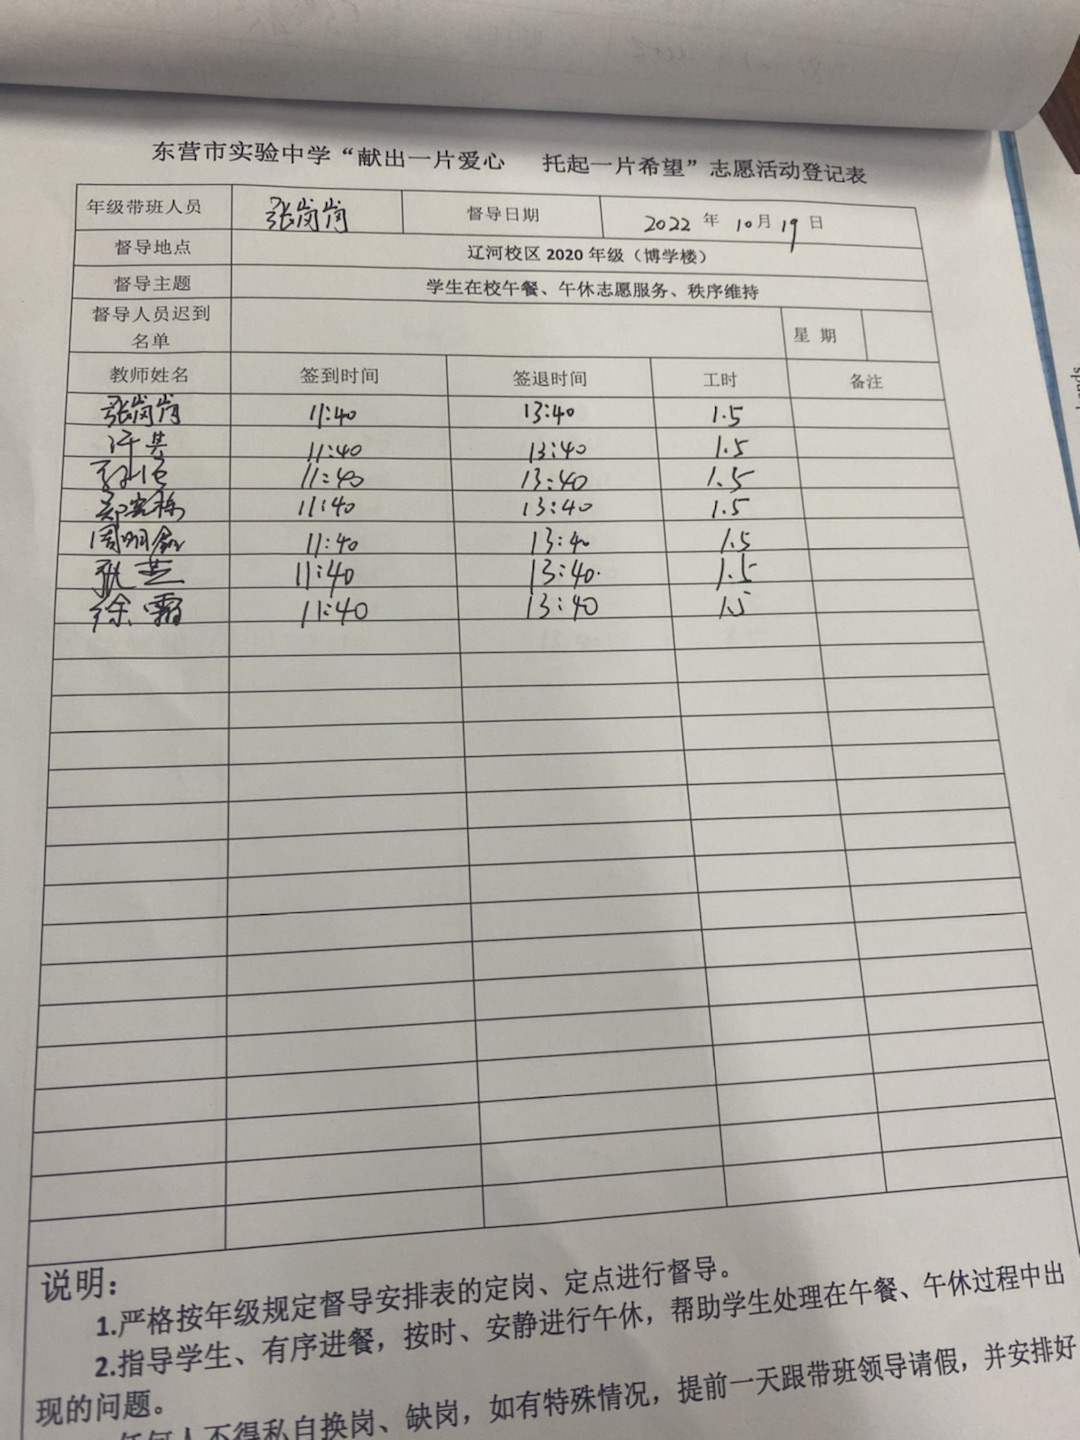 东营市实验中学“献出一片爱心 托起一片希望”志愿活动登记表
年级带班人员 张岗岗 督导日期 2022 年 10月 19 日
督导地点 辽河校区 2020 年级（博学楼）
督导主题 学生在校午餐、午休志愿服务、秩序维持
督导人员迟到名单 星 期
教师姓名 签到时间 签退时间 工时 备注
张岗岗 11:40 13:40 1.5
11:40 13:40 1.5
11:40 13:40 1.5
郑宏栋 11:40 13:40 1.5
周明鑫 11:40 13:40 1.5
张芝 11:40 13:40. 1.5
徐霜 11:40 13:40 1.5
说明：
1.严格按年级规定督导安排表的定岗、定点进行督导。
2.指导学生、有序进餐，按时、安静进行午休，帮助学生处理在午餐、午休过程中出
现的问题。
任何人不得私自换岗、缺岗，如有特殊情况，提前一天跟带班领导请假，并安排好